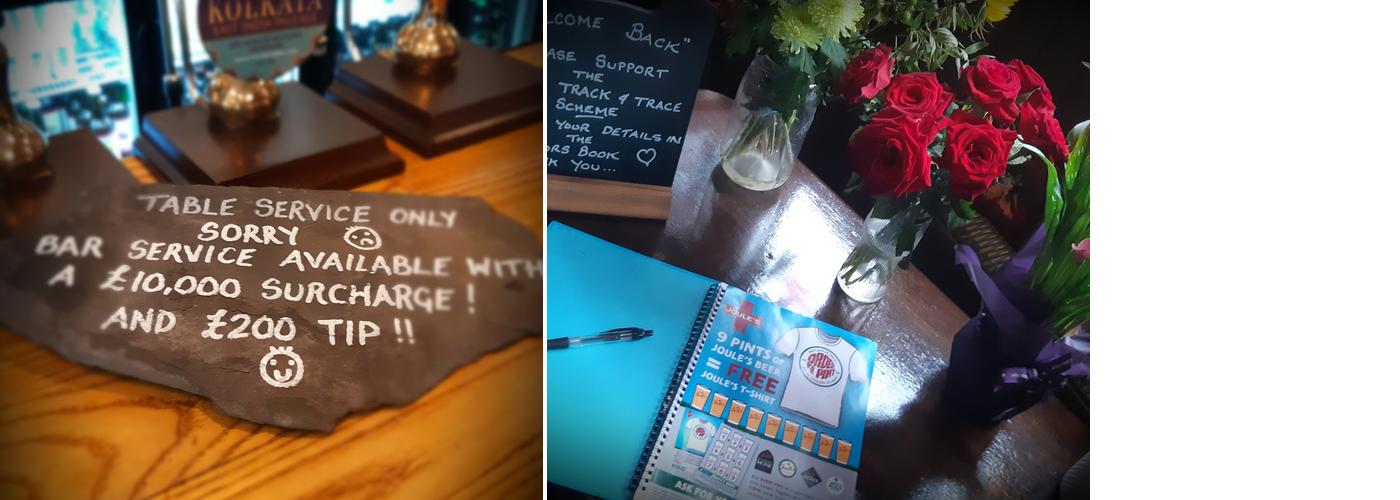 KOLKATA
EAST INDIA PALE ALE
TABLE SERVICE ONLY
SORRY
BAR SERVICE AVAILABLE WITH
A £10,000 SURCHARGE!
AND £200 TIP!!
LCOME BACK"
ASE SUPPORT
THE
TRACK & TRACE
SCHEME
YOUR DETAILS IN
THE
ORS BOOK
K YOU...
JOULE'S
9 PINTS OF
JOULE'S BEER
= FREE
JOULE'S T-SHIRT
ORDER
PINT
ASK FOR